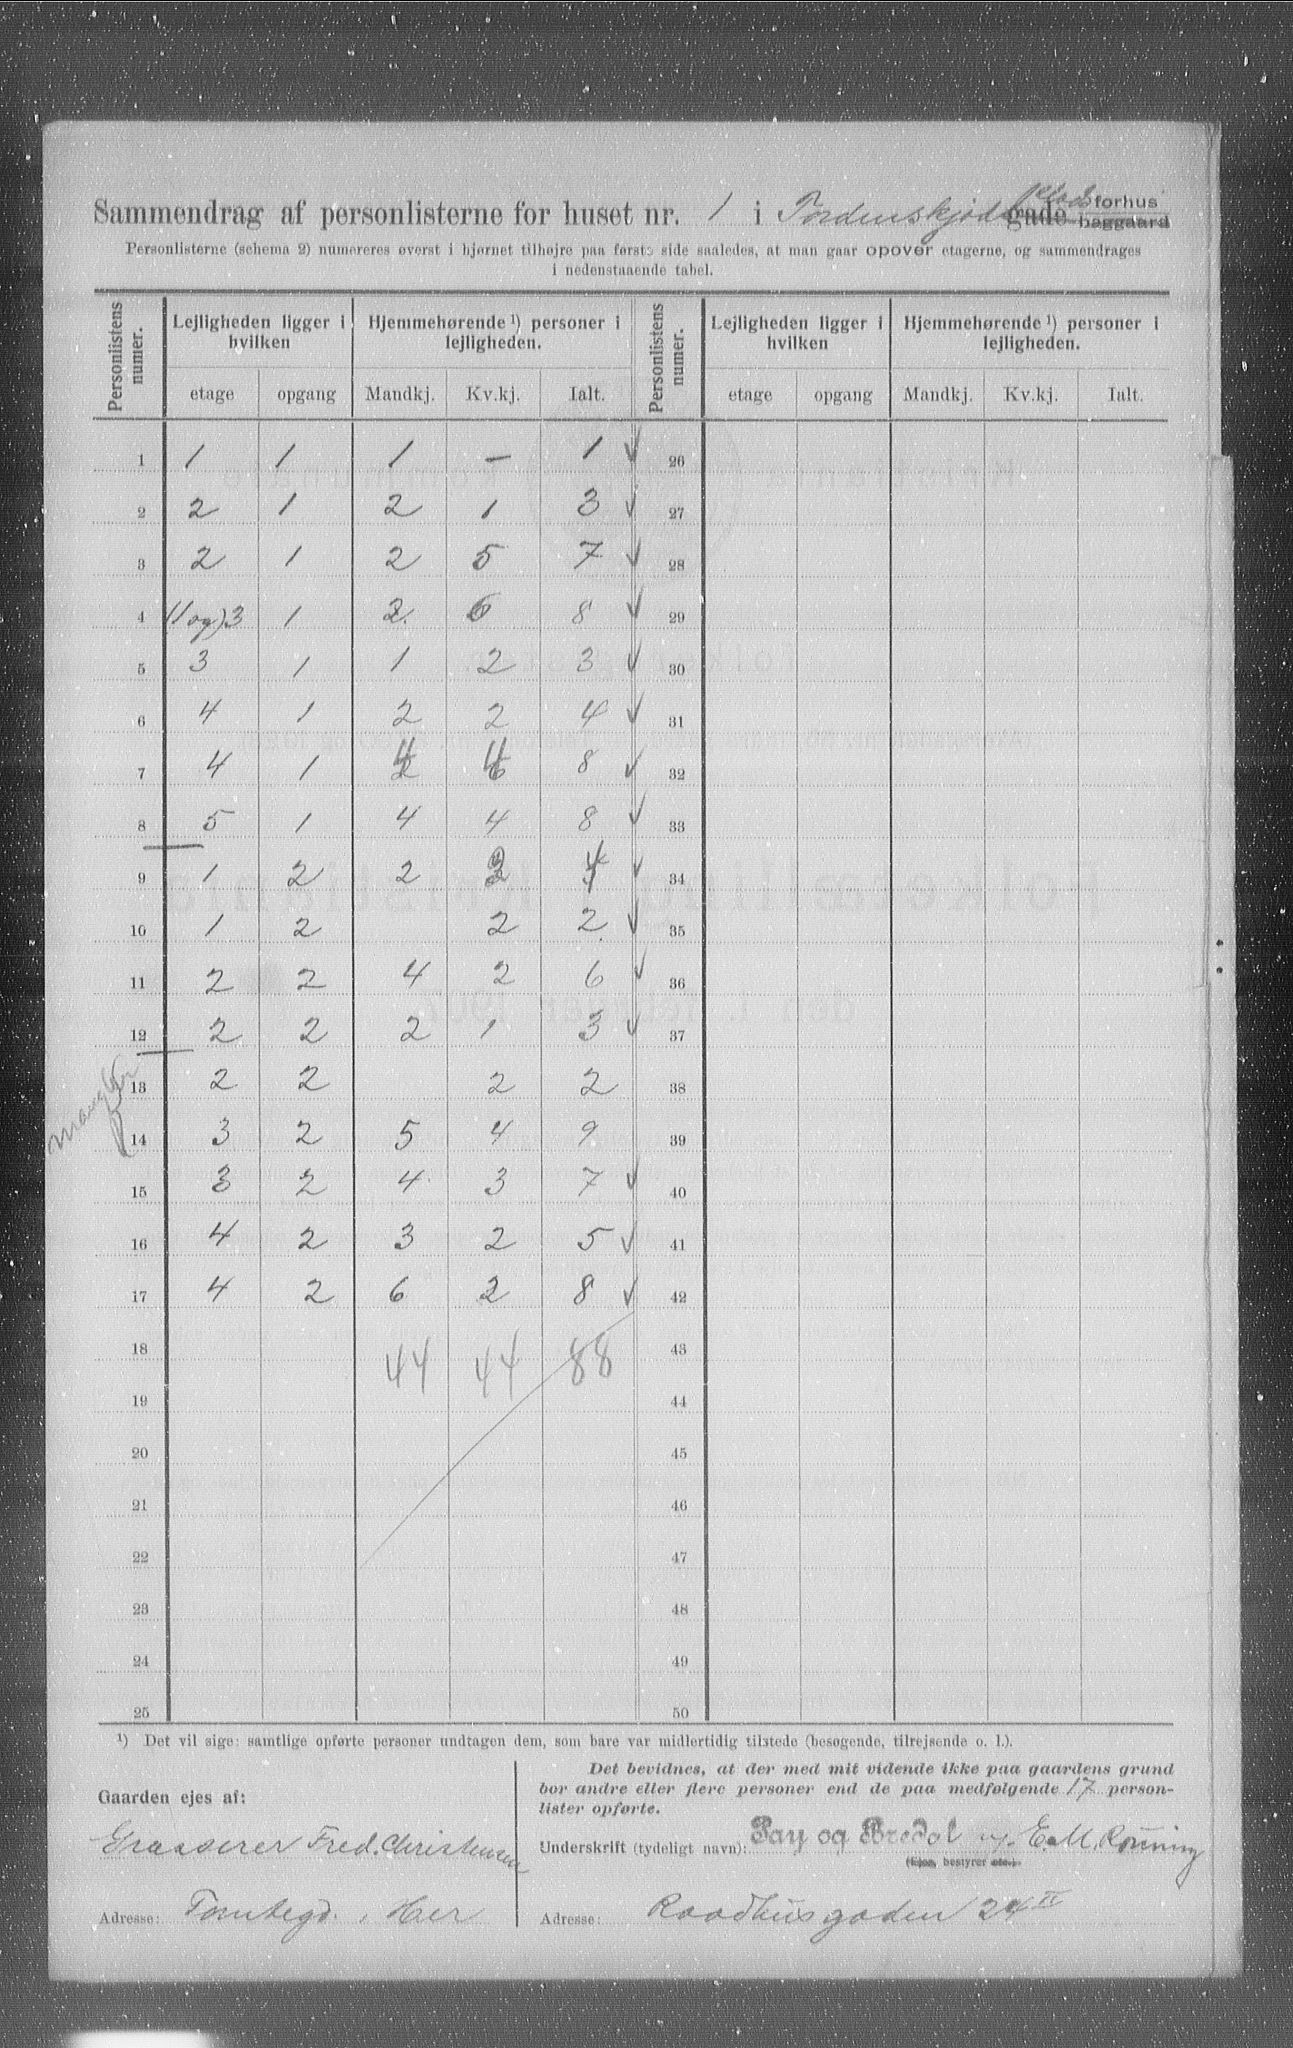 Sammendrag af personlisterne for huset nr. 1 i Tordenskjolds plads gade forhus baggaard
Personlisterne (schema 2) numereres øverst i hjørnet tilhøjre paa første side saaledes, at man gaar opover etagerne, og sammendrages
i nedenstaaende tabel.
Personlistens numer. Lejligheden ligger i hvilken Hjemmehørende ¹) personer i lejligheden. Personlistens numer. Lejligheden ligger i hvilken Hjemmehørende ¹) personer i lejligheden.
etage opgang Mandkj. Kv.kj. Ialt. etage opgang Mandkj. Kv.kj. Ialt.
1 1 1 1 - 1 ✓ 26
2 2 1 2 1 3 ✓ 27
3 2 1 2 5 7 ✓ 28
4 (1 og) 3 1 2 6 8 ✓ 29
5 3 1 1 2 3 ✓ 30
6 4 1 2 2 4 ✓ 31
7 4 1 4 4 8 ✓ 32
8 5 1 4 4 8 ✓ 33
9 1 2 2 2 4 ✓ 34
10 1 2 2 2 ✓ 35
11 2 2 4 2 6 ✓ 36
12 2 2 2 1 3 ✓ 37
mangler
13 2 2 2 2 38
14 3 2 5 4 9 39
15 3 2 4 3 7 ✓ 40
16 4 2 3 2 5 ✓ 41
17 4 2 6 2 8 ✓ 42
18 44 44 88 43
19 44
20 45
21 46
22 47
23 48
24 49
25 50
¹) Det vil sige: samtlige opførte personer undtagen dem, som bare var midlertidig tilstede (besøgende, tilrejsende o. l.).
Gaarden ejes af:
Grosserer Fred. Christensen
Adresse: Tomtegd. , Her
Det bevidnes, at der med mit vidende ikke paa gaardens grund
bor andre eller flere personer end de paa medfølgende 17 person-
lister opførte.
Underskrift (tydeligt navn): Pay og Bredal E.M. Rønning
(Ejer, bestyrer etc.)
Adresse: Raadhusgaden 24 II